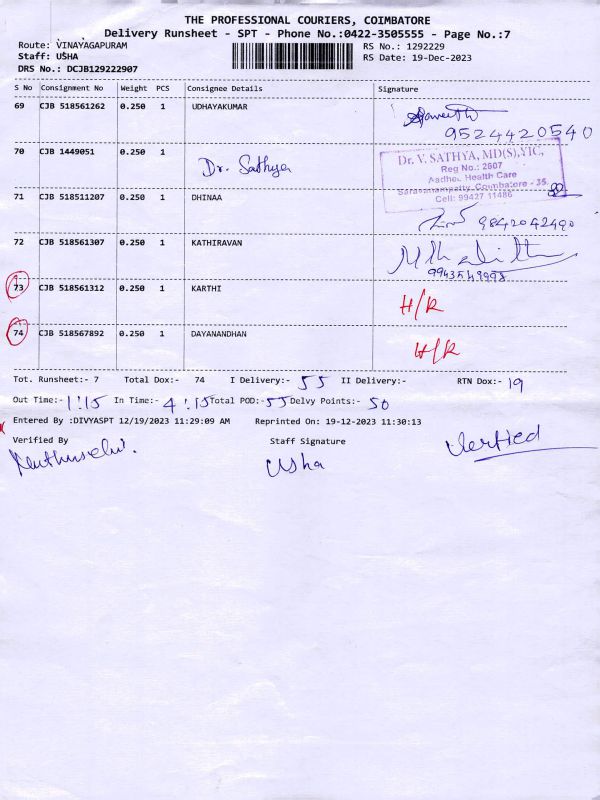 THE PROFESSIONAL COURIERS, COIMBATORE
Delivery Runsheet - SPT - Phone No.:0422-3505555 - Page No.:7
Route: VINAYAGAPURAM RS No.: 1292229
Staff: USHA RS Date: 19-Dec-2023
DRS No.: DCJB129222907
S No Consignment No Weight PCS Consignee Details Signature
69 CJB 518561262 0.250 1 UDHAYAKUMAR
9524420540
70 CJB 1449051 0.250 1 Dr. Sathya
Dr. V. SATHYA, MD(S),YIC,
Reg No.: 2607
Aadhee Health Care
Saravanampatty, Coimbatore - 35.
Cell: 99427 11486
71 CJB 518511207 0.250 1 DHINAA
9842042490
72 CJB 518561307 0.250 1 KATHIRAVAN
73 CJB 518561312 0.250 1 KARTHI H/R
74 CJB 518567892 0.250 1 DAYANANDHAN H/R
Tot. Runsheet:- 7 Total Dox:- 74 I Delivery:- 55 II Delivery:- RTN Dox:- 19
Out Time:- 1:15 In Time:- 4:15 Total POD:- 55 Delvy Points:- 50
Entered By :DIVYASPT 12/19/2023 11:29:09 AM Reprinted On: 19-12-2023 11:30:13
Verified By Staff Signature Verified
Usha